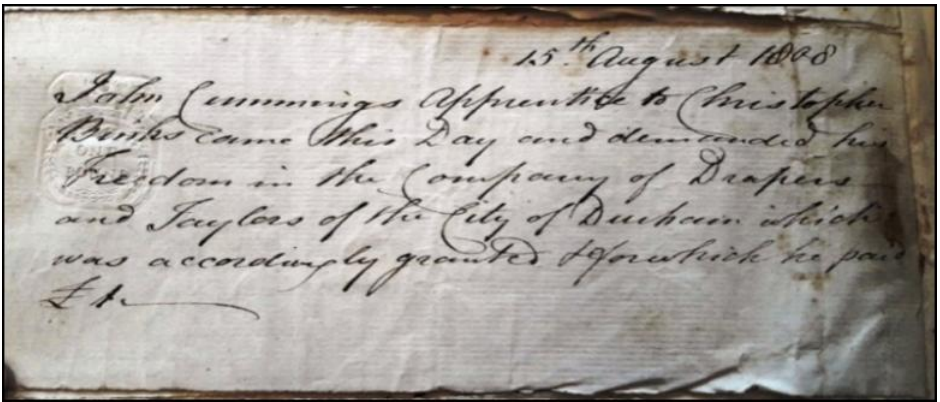 15th. August 1808
John Cummings Apprentice to Christopher
Binks came this Day and demanded his
Freedom in the Company of Drapers
and Taylors of the City of Durham which
was accordingly granted & for which he paid